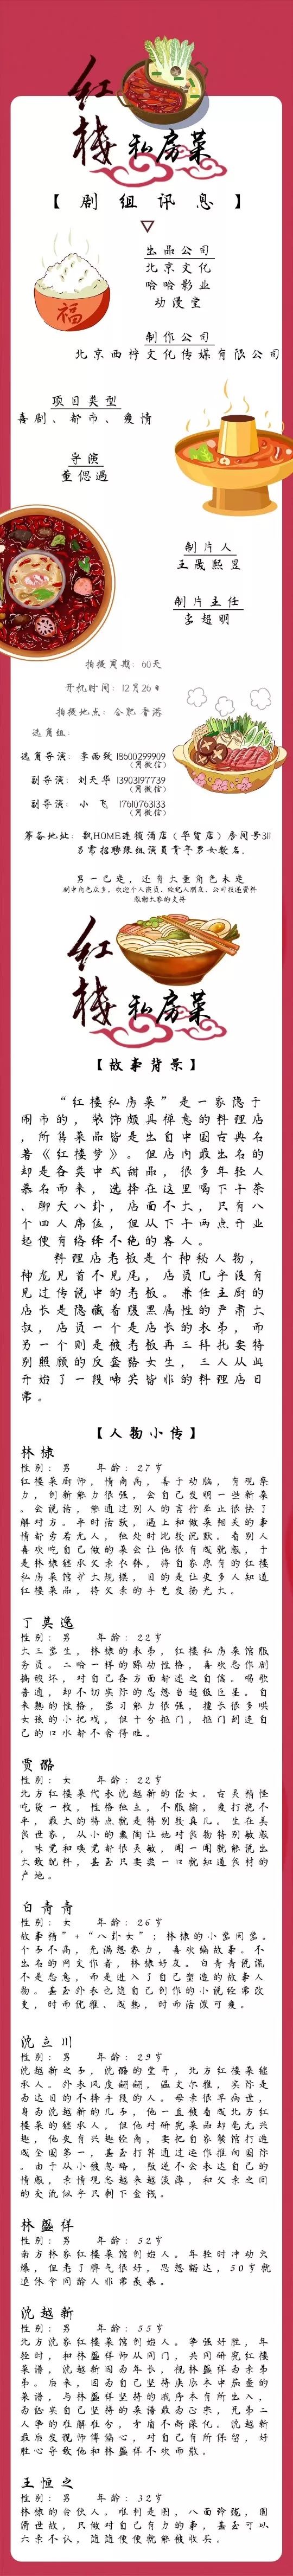 红楼 私房菜
【剧组讯息】
出品公司
北京文化
哈哈影业
动漫堂
制作公司
北京西梓文化传媒有限公司
项目类型
喜剧、都市、爱情
导演
董偲过
制片人
王晟熙昱
制片主任
李超明
福
拍摄周期：60天
开机时间：12月26号
拍摄地点：合肥 香港
选角组：
选角导演：李雨致 18600299909
（同微信）
副导演：刘天华 13903197739
（同微信）
副导演：小飞 17610763133
（同微信）
筹备地址：飘HOME连锁酒店（华贸店）房间号311
另需招聘跟组演员青年男女数名。
男一已定，还有大量角色未定
剧中角色众多，欢迎个人演员、经纪人朋友、公司投递资料
感谢大家的支持
红楼 私房菜
【故事背景】
“红楼私房菜”是一家隐于
闹市的，装饰颇具禅意的料理店
，所售菜品皆是出自中国古典名
著《红楼梦》。但店内最出名的
却是各类中式甜品，很多年轻人
慕名而来，选择在这里喝下午茶
、聊天八卦，店面不大，只有八
个四人席位，但从下午两点开业
起便有络绎不绝的客人。
料理店老板是个神秘人物，
神龙见首不见尾，店员几乎没有
见过传说中的老板。兼任主厨的
店长是隐藏着腹黑属性的严肃大
叔，店员一个是店长的表弟，而
另一个则是被老板再三拜托要特
别照顾的反套路女生，三人从此
开始了一段啼笑皆非的料理店日
常。
【人物小传】
林棣
性别：男 年龄：27岁
红楼菜厨师，情商高，善于动脑，有观察
力，创新能力很强，会自己发明一些新菜
。会说话，能通过别人的言行举止很快了
解对方。平时活跃，遇上和做菜相关的事
情却旁若无人，独处时比较沉默。看别人
喜欢吃自己做的菜会让他很有成就感，于
是林棣继承父亲衣钵，将自家原有的红楼
私房菜馆扩大规模，目的是让更多人知道
红楼菜品，将父亲的手艺发扬光大。
丁莫逸
性别：男 年龄：22岁
大三学生，林棣的表弟，红楼私房菜馆服
务员。二哈一样的躁动性格，喜欢恶作剧
搞破坏，对自己各方面却迷之自信。唱歌
普通，却不切实际的总想当超级巨星。自
来熟的性格，学习能力很强，擅长很多哄
女孩的小把戏，但十分抠门，抠门到连自
己的口水都不舍得吐。
贾璐
性别：女 年龄：22岁
北方红楼菜代表沈越新的侄女。古灵精怪
吃货一枚，性格独立，不服输，爱打抱不
平，最大的特点就是特别较真儿。生在美
食世家，从小的熏陶让她对食物特别敏感
，味觉和嗅觉都很灵敏，闻一闻就能说出
大致配料，甚至只要尝一口就知道食材的
产地。
白青青
性别：女 年龄：26岁
故事精”+“八卦女”；林棣的小学同学。
个子不高，充满想象力，喜欢编故事。不
出名的网文作者，林棣好友。白青青说谎
不是恶意，而是进入了自己塑造的故事人
物。甚至外表也随自己创作的小说经常改
变，时而优雅、成熟，时而活泼可爱。
沈立川
性别：男 年龄：29岁
沈越新之子，沈璐的堂哥，北方红楼菜继
承人。外表风度翩翩，温文尔雅，实际是
为达目的不择手段的人。母亲很早病世，
身为沈越新的儿子，他一直被看成北方红
楼菜的继承人，但他对研究菜品却毫无兴
趣，他更有兴趣经商，要把自家餐馆打造
成全国第一，甚至打算通过运作推向国际
。由于从小被忽略，叛逆不会表达自己的
情感，亲情观念越来越淡薄，和父亲之间
的交流似乎只剩下金钱。
林盛祥
性别：男 年龄：52岁
南方林家红楼菜馆创始人。年轻时冲动火
爆，但老了脾气很好，思想豁达，50岁就
退休令同龄人非常羡慕。
沈越新
性别：男 年龄：55岁
北方沈家红楼菜馆创始人。争强好胜，年
轻时，和林盛祥师从同门，共同研究红楼
菜谱，沈越新因为年长，视林盛祥为亲弟
弟。后来，因为自己坚持庚辰本中茄鲞的
菜谱，与林盛祥坚持的戚序本有所出入，
为证实自己坚持的菜谱最为正宗，兄弟二
人争的难解难分，矛盾不断深化。沈越新
最后发现师傅偏心，对自己有所保留，好
胜心导致他和林盛祥不欢而散。
王恒之
性别：男 年龄：32岁
林棣的合伙人。唯利是图，八面玲珑，圆
滑世故，只做对自己有力的事，甚至可以
六亲不认，随随便便就能被收买。